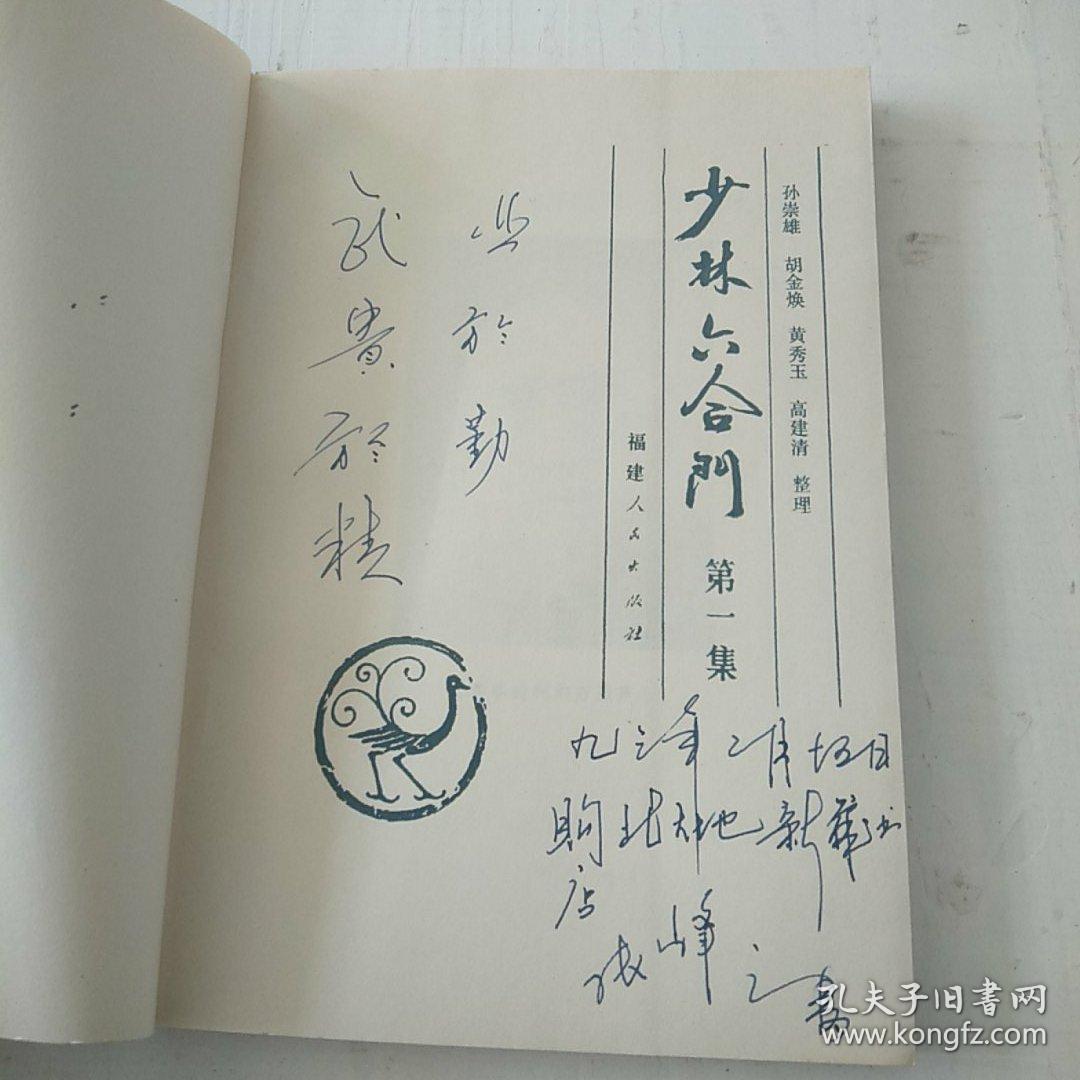 孙崇雄 胡金焕 黄秀玉 高建清 整理
少林六合門 第一集
福建人民出版社
业於勤
武貴於精
九三年二月十五日
购北地新华书
店
张峰
孔夫子旧書网
www.kongfz.com